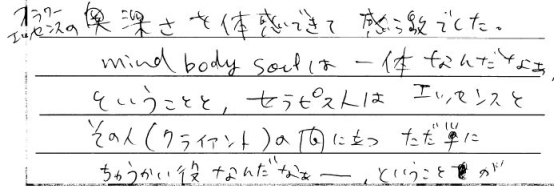 フラワーエッセンスの奥深さを体感できて感激でした。
mind body soulは一体なんだなあ、
ということと、セラピストはエッセンスと
その人(クライアント)の間に立つただ単に
ちゅうかい役なんだなぁー、ということが